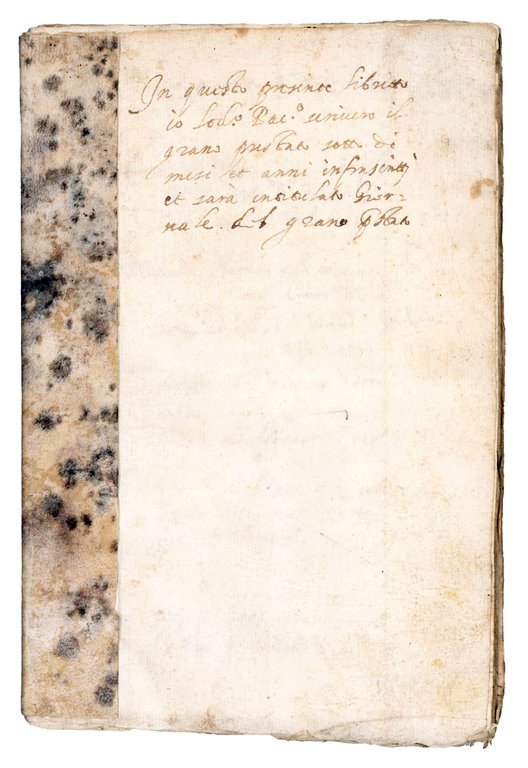 In questo presente libretto
io Lod.o Pac.o scrivero il
grano prestato sotto di
mesi et anni infrascritti
et sarà intitulato Gior=
nale del grano pstato